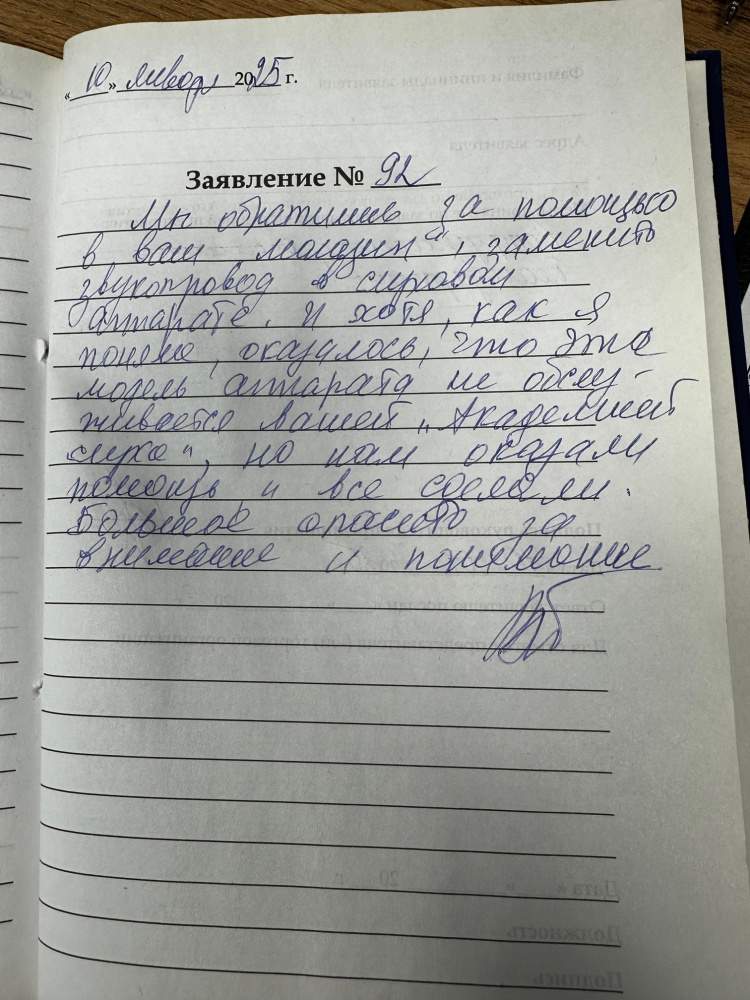 « 10 » января 2025 г.
Заявление № 92
Мы обратились за помощью
в ваш магазин, заменить
звукопровод в слуховой
аппарате. И хотя, как я
поняла, оказалось, что эта
модель аппарата не обслу-
живается вашей „Академией
слуха", но нам оказали
помощь и все сделали.
Большое спасибо за
внимание и понимание